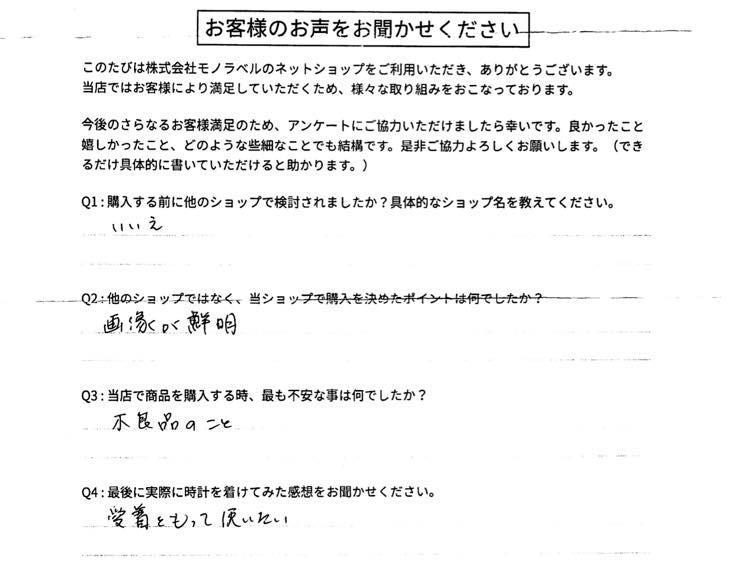 お客様のお声をお聞かせください
このたびは株式会社モノラベルのネットショップをご利用いただき、ありがとうございます。
当店ではお客様により満足していただくため、様々な取り組みをおこなっております。
今後のさらなるお客様満足のため、アンケートにご協力いただけましたら幸いです。良かったこと
嬉しかったこと、どのような些細なことでも結構です。是非ご協力よろしくお願いします。（でき
るだけ具体的に書いていただけると助かります。）
Q1：購入する前に他のショップで検討されましたか？具体的なショップ名を教えてください。
いいえ
Q2：他のショップではなく、当ショップで購入を決めたポイントは何でしたか？
画像が鮮明
Q3：当店で商品を購入する時、最も不安な事は何でしたか？
不良品のこと
Q4：最後に実際に時計を着けてみた感想をお聞かせください。
愛着をもって使いたい